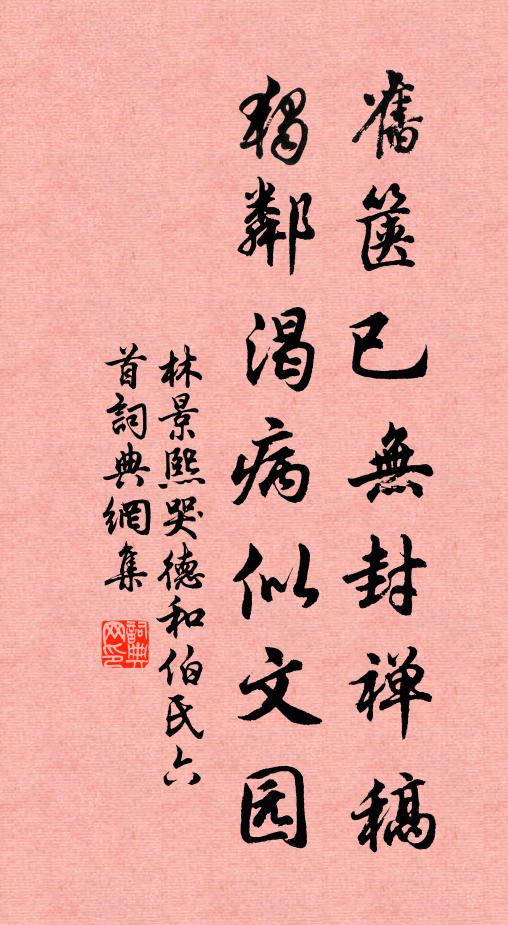 舊篋已無封禅稿
獨鄰渴病似文园
林景熙哭德和伯氏六
首詞典網集
詞典网印